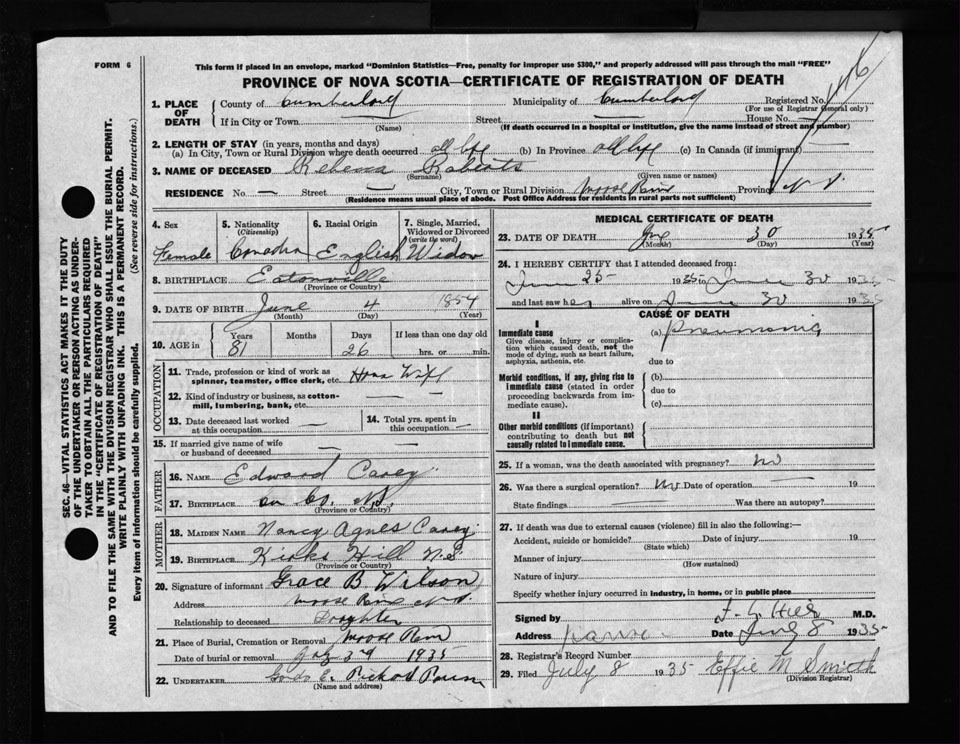 FORM 6
This form if placed in an envelope, marked "Dominion Statistics—Free, penalty for improper use $300," and properly addressed will pass through the mail "FREE"
PROVINCE OF NOVA SCOTIA—CERTIFICATE OF REGISTRATION OF DEATH
1. PLACE OF DEATH
County of Cumberland Municipality of Cumberland Registered No.
(For use of Registrar General only)
If in City or Town (Name) Street — House No. —
(If death occurred in a hospital or institution, give the name instead of street and number)
2. LENGTH OF STAY (in years, months and days)
(a) In City, Town or Rural Division where death occurred all life (b) In Province all life (c) In Canada (if immigrant) —
3. NAME OF DECEASED Rebecca Roberts
(Surname) (Given name or names)
RESIDENCE No. — Street — City, Town or Rural Division Moose River Province N.S.
(Residence means usual place of abode. Post Office Address for residents in rural parts not sufficient)
4. Sex Female
5. Nationality (Citizenship) Canadian
6. Racial Origin English
7. Single, Married, Widowed or Divorced (write the word) Widow
8. BIRTHPLACE Eatonville
(Province or Country)
9. DATE OF BIRTH June 4 1854
(Month) (Day) (Year)
10. AGE in Years 81 Months Days 26 If less than one day old hrs. or min.
OCCUPATION
11. Trade, profession or kind of work as spinner, teamster, office clerk, etc. House Wife
12. Kind of industry or business, as cotton-mill, lumbering, bank, etc. — —
13. Date deceased last worked at this occupation — 14. Total yrs. spent in this occupation —
15. If married give name of wife or husband of deceased — —
FATHER
16. NAME Edward Carey
17. BIRTHPLACE Co. N.S.
(Province or Country)
MOTHER
18. MAIDEN NAME Nancy Agnes Carey
19. BIRTHPLACE Kirks Hill N.S.
(Province or Country)
20. Signature of informant Grace B. Wilson
Address Moose River N.S.
Relationship to deceased Daughter
21. Place of Burial, Cremation or Removal Moose River
Date of burial or removal July 3rd 1935
22. UNDERTAKER
(Name and address)
MEDICAL CERTIFICATE OF DEATH
23. DATE OF DEATH June 30 1935
(Month) (Day) (Year)
24. I HEREBY CERTIFY that I attended deceased from:
June 25 1935 to June 30 1935
and last saw her alive on June 30 1935
CAUSE OF DEATH
I
Immediate cause (a) Pneumonia
Give disease, injury or complication which caused death, not the mode of dying, such as heart failure, asphyxia, asthenia, etc.
due to
Morbid conditions, if any, giving rise to immediate cause (stated in order proceeding backwards from immediate cause).
(b)
due to
(c)
II
Other morbid conditions (if important) contributing to death but not causally related to immediate cause.
25. If a woman, was the death associated with pregnancy? No
26. Was there a surgical operation? No Date of operation — 19
State findings — Was there an autopsy?
27. If death was due to external causes (violence) fill in also the following:—
Accident, suicide or homicide? Date of injury 19
(State which)
Manner of injury
(How sustained)
Nature of injury
Specify whether injury occurred in industry, in home, or in public place
Signed by M.D.
Address Date July 8 1935
28. Registrar's Record Number
29. Filed July 8 1935 Effie M Smith
(Division Registrar)
SEC. 46—VITAL STATISTICS ACT MAKES IT THE DUTY
OF THE UNDERTAKER OR PERSON ACTING AS UNDER-
TAKER TO OBTAIN ALL THE PARTICULARS REQUIRED
IN THE "CERTIFICATE OF REGISTRATION OF DEATH"
AND TO FILE THE SAME WITH THE DIVISION REGISTRAR WHO SHALL ISSUE THE BURIAL PERMIT.
WRITE PLAINLY WITH UNFADING INK. THIS IS A PERMANENT RECORD.
Every item of information should be carefully supplied. (See reverse side for instructions.)